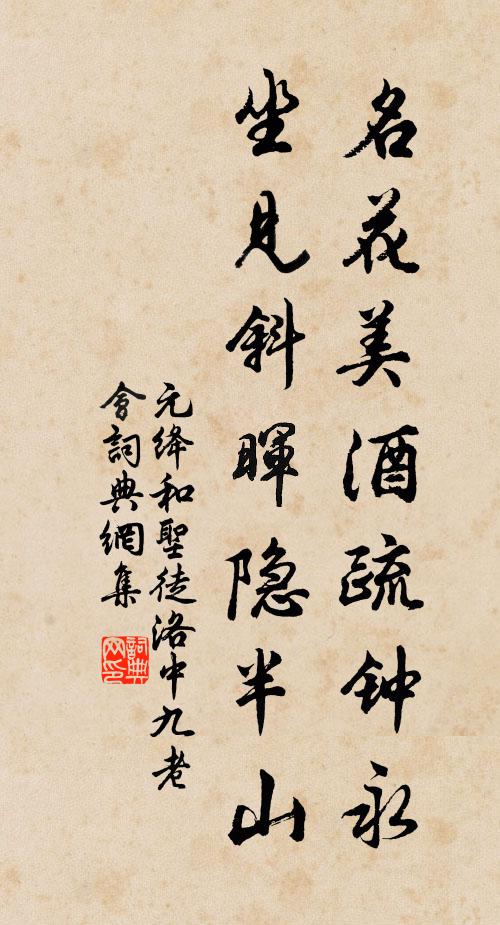 名花美酒疏钟永
坐見斜暉隐半山
元絳和聖徒洛中九老
會詞典網集
詞典網印